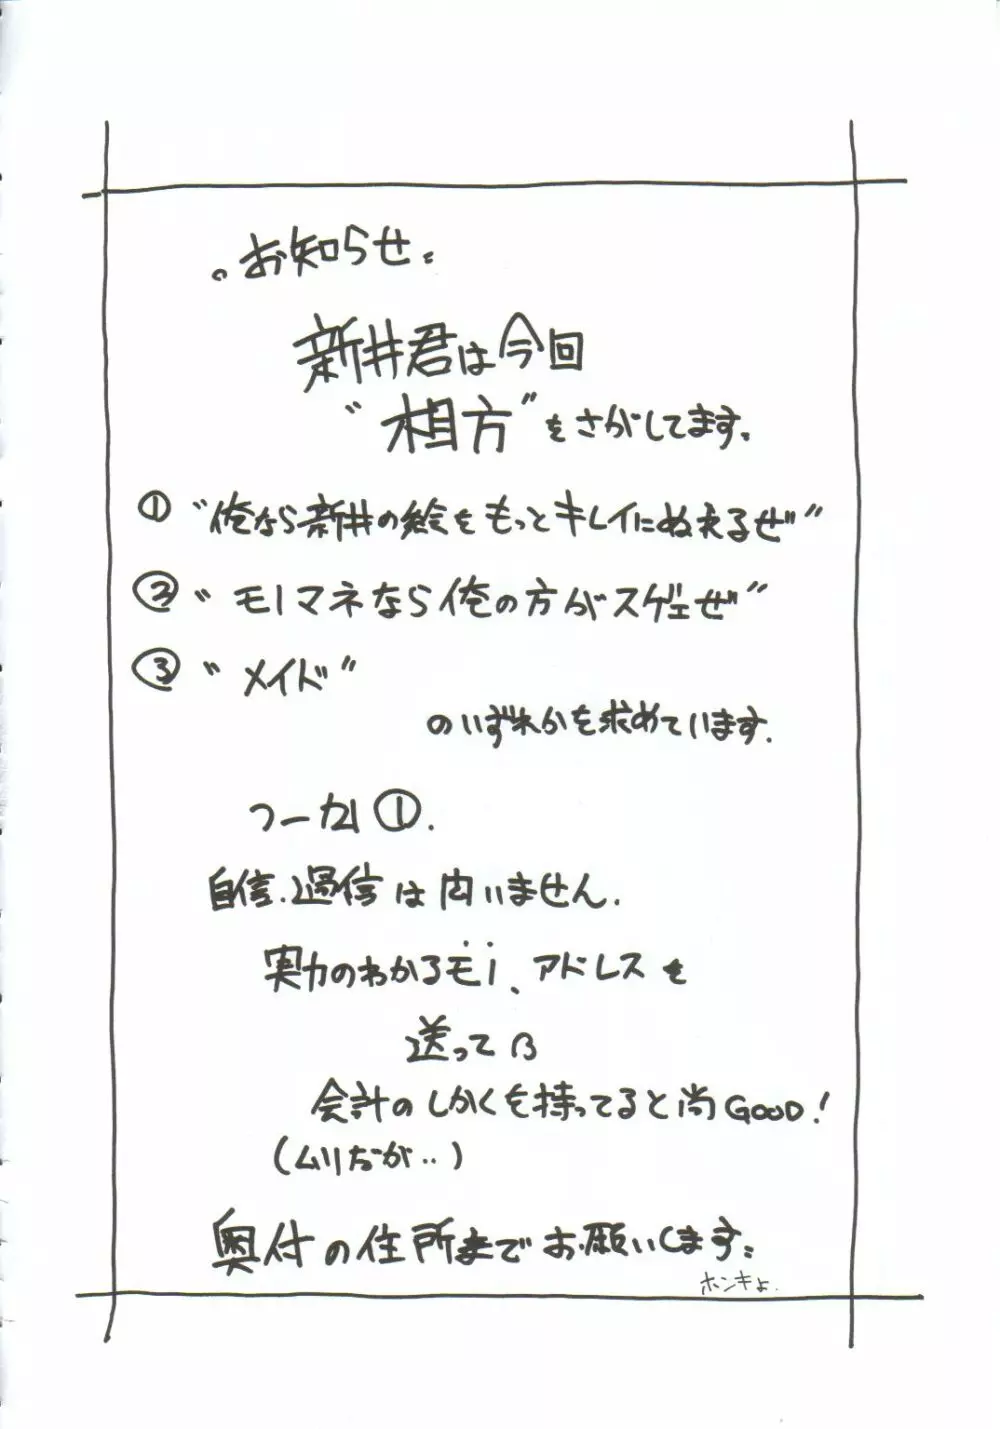 。お知らせ。
新井君は今回
“相方”をさがしてます。
① “俺なら新井の絵をもっとキレイにぬえるぜ”
② “モノマネなら俺の方がスゲェぜ”
③ “メイド”
のいずれかを求めています.
つーか①.
自信.過信は問いません.
実力のわかるモノ、アドレスを
送ってβ
会計のしかくを持ってると尚GOOD!
(ムリだが..)
奥付の住所までお願いします。
ホンキよ.